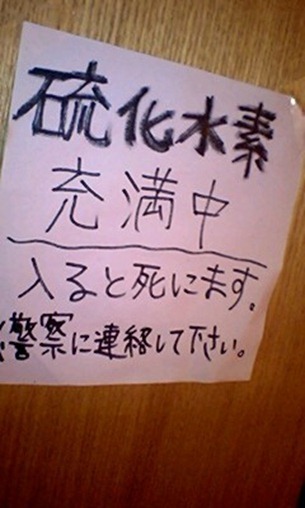 硫化水素
充満中
入ると死にます。
警察に連絡して下さい。